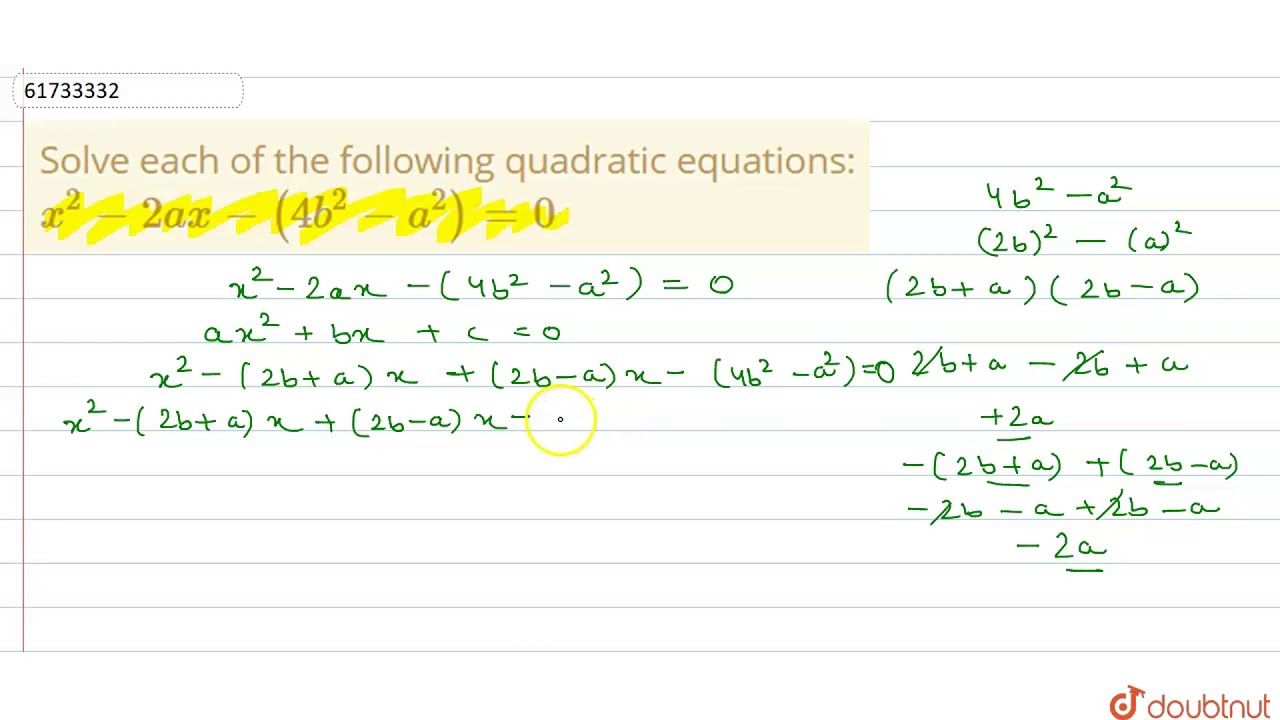 61733332
Solve each of the following quadratic equations:
x² − 2ax − (4b² − a²) = 0
x² − 2ax − (4b² − a²) = 0
ax² + bx + c = 0
x² − (2b + a) x + (2b − a) x − (4b² − a²) = 0
x² − (2b + a) x + (2b − a) x −
4b² − a²
(2b)² − (a)²
(2b + a) (2b − a)
2b + a − 2b + a
+2a
−(2b + a) + (2b − a)
−2b − a + 2b − a
− 2a
doubtnut